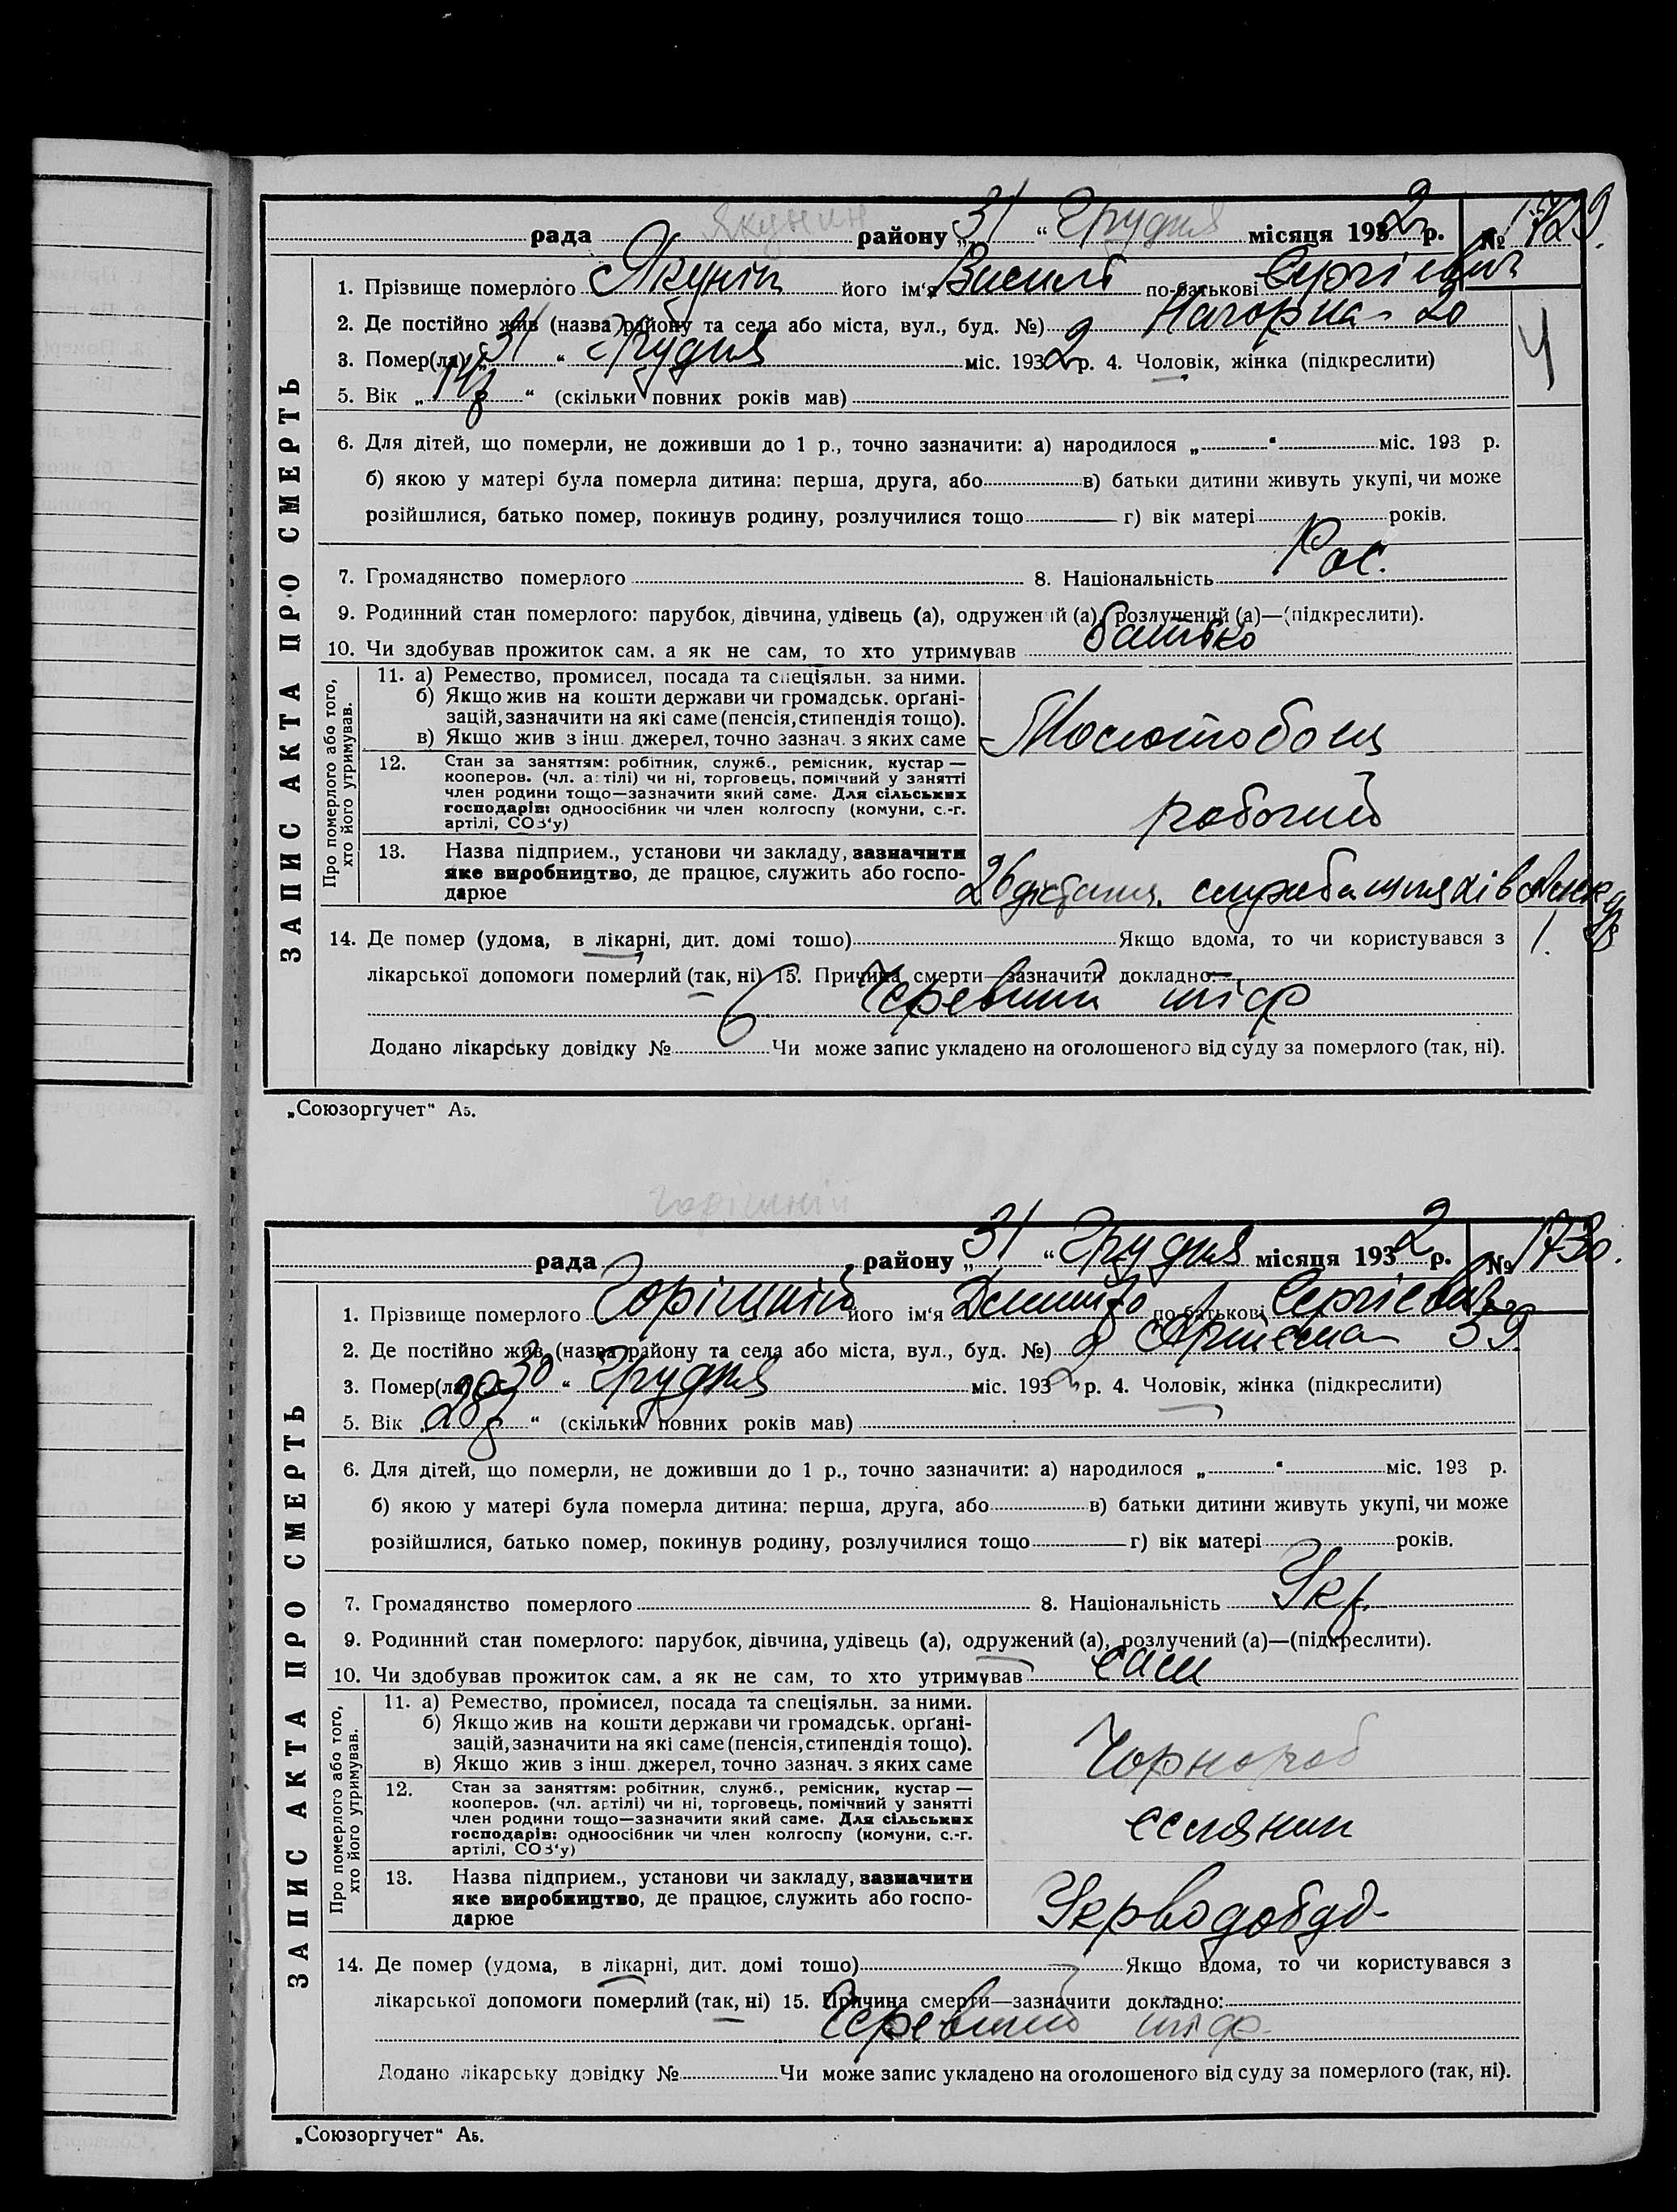 Якунин
рада района „31“ Грудня місяця 1932 р. № 1729.
ЗАПИС АКТА ПРО СМЕРТЬ
1. Прізвище померлого Якунін його ім'я Василь по-батькові Сергієвич
2. Де постійно жив (назва району та села або міста, вул., буд. №) Нагорна 20
3. Помер(ла) „31“ Грудня міс. 1932 р. 4. Чоловік, жінка (підкреслити)
5. Вік „14 р“ (скільки повних років мав)
Ч
6. Для дітей, що померли, не доживши до 1 р., точно зазначити: а) народилося „ “ міс. 193 р.
б) якою у матері була померла дитина: перша, друга, або в) батьки дитини живуть укупі, чи може
розійшлися, батько помер, покинув родину, розлучилися тощо г) вік матері років.
7. Громадянство померлого 8. Національність Рос.
9. Родинний стан померлого: парубок, дівчина, удівець (а), одружений (а), розлучений (а)—(підкреслити).
10. Чи здобував прожиток сам, а як не сам, то хто утримував батько
Про померлого або того, хто його утримував.
11. а) Ремество, промисел, посада та спеціяльн. за ними.
б) Якщо жив на кошти держави чи громадськ. орґані-
зацій, зазначити на які саме (пенсія, стипендія тощо).
в) Якщо жив з інш. джерел, точно зазнач. з яких саме
Молотобоец
12. Стан за заняттям: робітник, служб., ремісник, кустар —
кооперов. (чл. артілі) чи ні, торговець, помічний у занятті
член родини тощо—зазначити який саме. Для сільських
господарів: одноосібник чи член колгоспу (комуни, с.-г.
артілі, СОЗ'у)
робочий
13. Назва підприєм., установи чи закладу, зазначити
яке виробництво, де працює, служить або госпо-
дарює
служба шляхів
14. Де помер (удома, в лікарні, дит. домі тощо) Якщо вдома, то чи користувався з
лікарської допомоги померлий (так, ні) 15. Причина смерти—зазначити докладно:
Черевний тіф
Додано лікарську довідку № Чи може запис укладено на оголошеного від суду за померлого (так, ні).
„Союзоргучет“ А5.
Горішній
рада району „31“ Грудня місяця 1932 р. № 1730.
ЗАПИС АКТА ПРО СМЕРТЬ
1. Прізвище померлого Горішний його ім'я Дмитро по-батькові Сергієвич
2. Де постійно жив (назва району та села або міста, вул., буд. №) Артема 59.
3. Помер(ла) „30“ Грудня міс. 1932 р. 4. Чоловік, жінка (підкреслити)
5. Вік „28 р“ (скільки повних років мав)
6. Для дітей, що померли, не доживши до 1 р., точно зазначити: а) народилося „ “ міс. 193 р.
б) якою у матері була померла дитина: перша, друга, або в) батьки дитини живуть укупі, чи може
розійшлися, батько помер, покинув родину, розлучилися тощо г) вік матері років.
7. Громадянство померлого 8. Національність Укр.
9. Родинний стан померлого: парубок, дівчина, удівець (а), одружений (а), розлучений (а)—(підкреслити).
10. Чи здобував прожиток сам, а як не сам, то хто утримував сам
Про померлого або того, хто його утримував.
11. а) Ремество, промисел, посада та спеціяльн. за ними.
б) Якщо жив на кошти держави чи громадськ. орґані-
зацій, зазначити на які саме (пенсія, стипендія тощо).
в) Якщо жив з інш. джерел, точно зазнач. з яких саме
Чорнороб
12. Стан за заняттям: робітник, служб., ремісник, кустар —
кооперов. (чл. артілі) чи ні, торговець, помічний у занятті
член родини тощо—зазначити який саме. Для сільських
господарів: одноосібник чи член колгоспу (комуни, с.-г.
артілі, СОЗ'у)
селянин
13. Назва підприєм., установи чи закладу, зазначити
яке виробництво, де працює, служить або госпо-
дарює
Укрводобуд
14. Де помер (удома, в лікарні, дит. домі тощо) Якщо вдома, то чи користувався з
лікарської допомоги померлий (так, ні) 15. Причина смерти—зазначити докладно:
Черевний тіф.
Додано лікарську довідку № Чи може запис укладено на оголошеного від суду за померлого (так, ні).
„Союзоргучет“ А5.